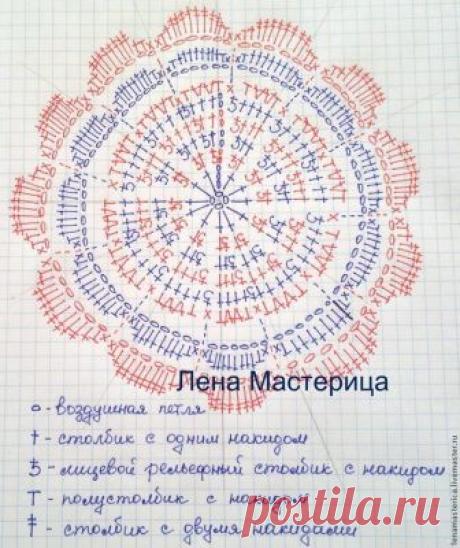 Лена Мастерица
о - воздушная петля
† - столбик с одним накидом
5 - лицевой рельефный столбик с накидом
Т - полустолбик с накидом
ǂ - столбик с двумя накидами
postila.ru
lenamasterica.livemaster.ru